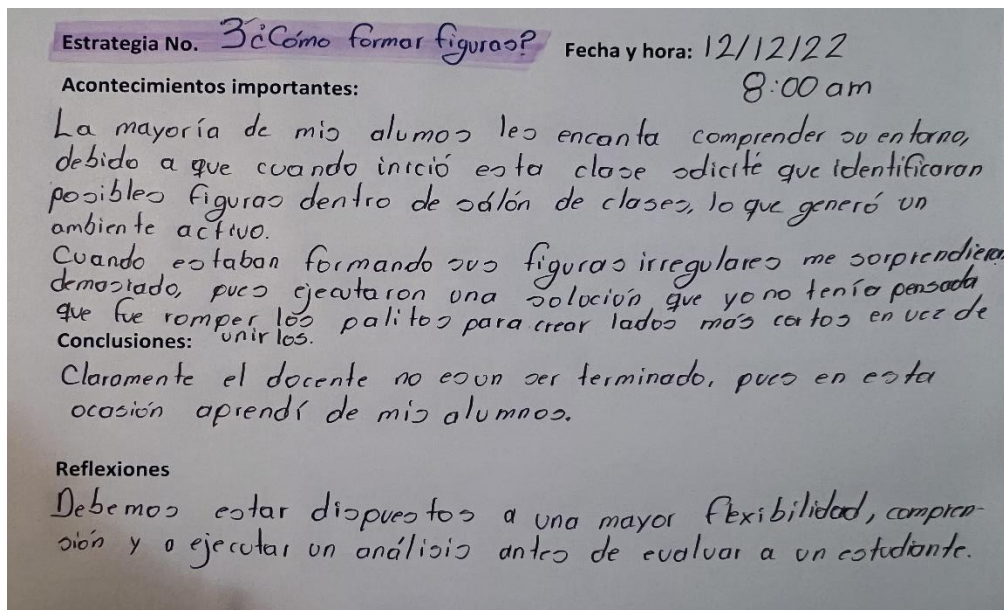 Estrategia No. 3 ¿Cómo formar figuras? Fecha y hora: 12/12/22
8:00 am
Acontecimientos importantes:
La mayoría de mis alumos les encanta comprender su entorno,
debido a que cuando inició esta clase solicité que identificaran
posibles figuras dentro de sálón de clases, lo que generó un
ambiente activo.
Cuando estaban formando sus figuras irregulares me sorprendieron
demasiado, pues ejecutaron una solución que yo no tenía pensada
que fue romper los palitos para crear lados más cortos en vez de
unirlos.
Conclusiones:
Claramente el docente no es un ser terminado, pues en esta
ocasión aprendí de mis alumnos.
Reflexiones
Debemos estar dispuestos a una mayor flexibilidad, compren-
sión y a ejecutar un análisis antes de evaluar a un estudiante.